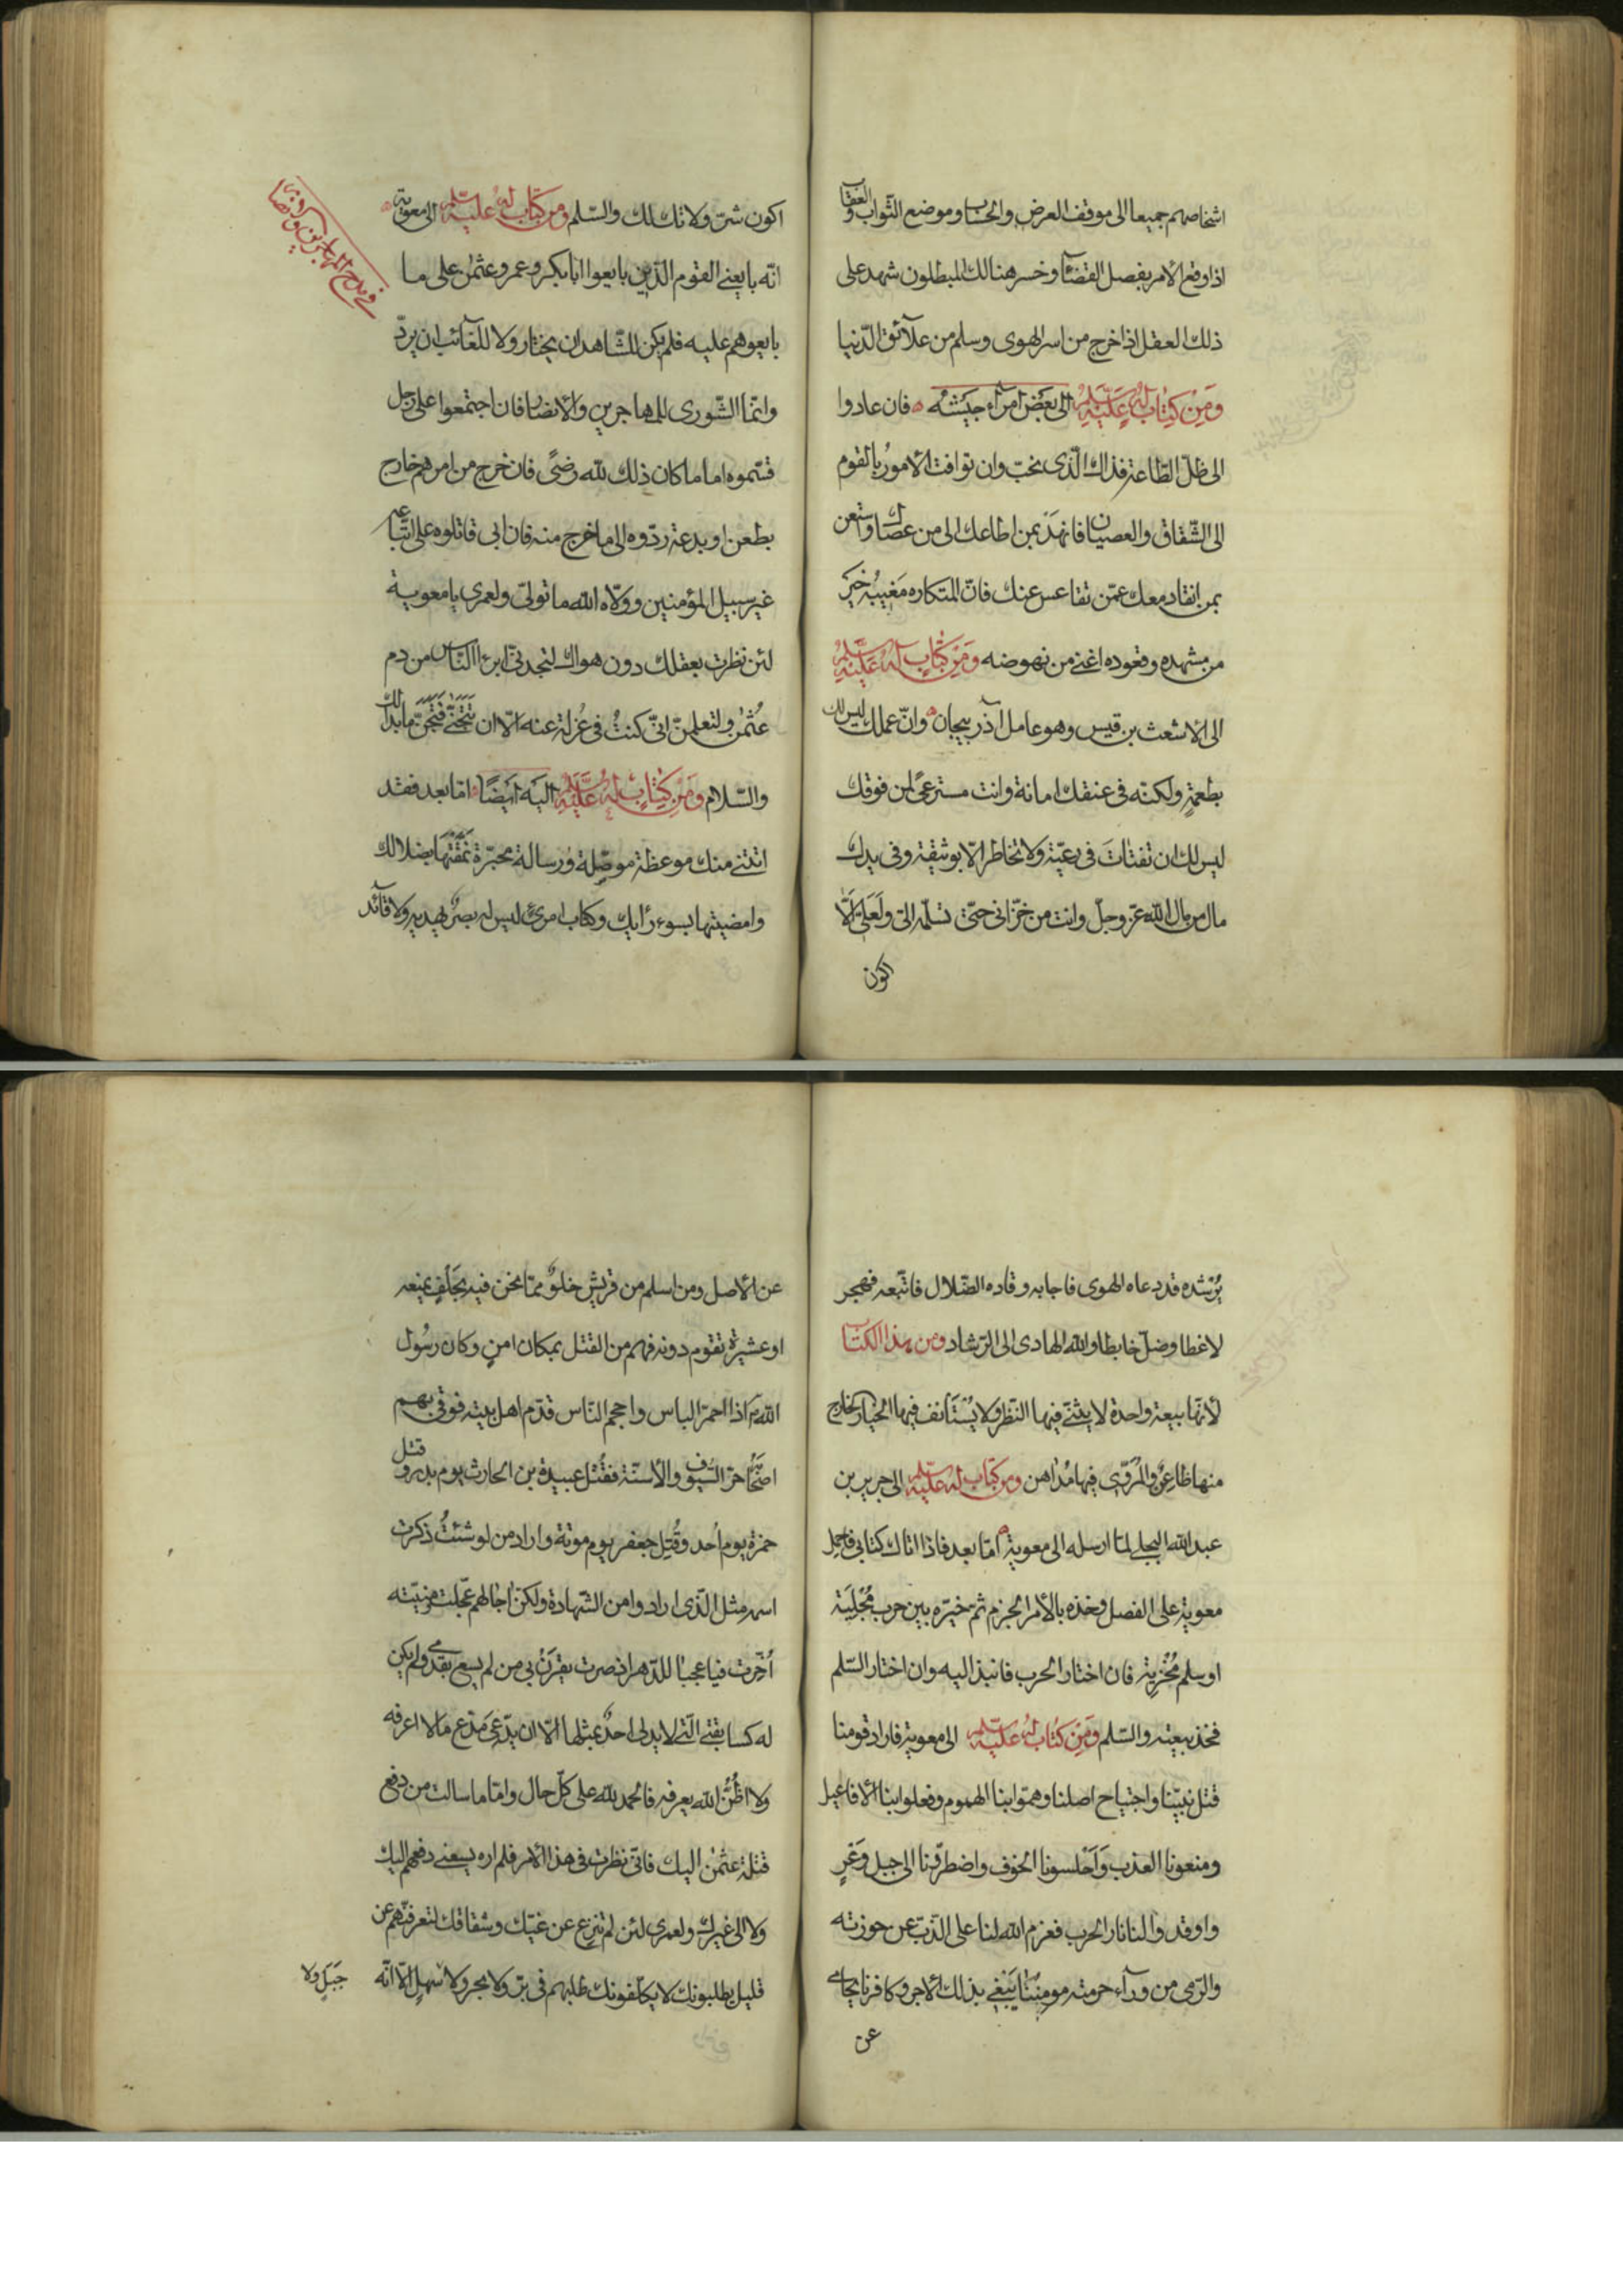 اشخاصهم جميعا الى موقف العرض والحساب وموضع الثواب والعقاب
اذا وقع الأمر بفصل القضآء وخسر هنالك المبطلون شهد على
ذلك العقل اذا خرج من اسر الهوى وسلم من علآئق الدّنيا
ومن كتاب له عليه السلم الى بعض امرآء جيشه فان عادوا
الى ظلّ الطاعة فذاك الّذى نحبّ وان توافت الأمورُ بالقوم
الى الشّقاق والعصيان فانهَد بمن اطاعك الى من عصاك واستعن
بمن انقاد معك عمّن تقاعس عنك فانّ المتكاره مَغيبُه خيَر
من مشهده وقعوده اغنى من نهوضه ومن كتاب له عليه السلم
الى الأشعث بن قيس وهو عامل آذربيجان وانّ عملك ليس لك
بطعمةٍ ولكنّه فى عنقك امانة وانت مسترعىً لمن فوقك
ليس لك ان تفتات فى رعيّة ولا تخاطر الّا بوثيقة وفى يدك
مال من مال اللّه عزّ وجلّ وانت من خزّانى حتّى تسلّمه الىّ ولَعلّى الّا
اكون
اكون شرّ ولاتك لك والسّلم ومن كتاب له عليه السلم الى معوية
فى مدح المهاجرين والانصار
انّه بايعنى القوم الّذين بايعوا ابا بكر وعمر وعثمٰن على ما
بايعوهم عليه فلم يكن للشّاهد ان يختار ولا للغآئب ان يردّ
وانّما الشّورى للمهاجرين والأنصار فان اجتمعوا على رجل
فسّموه اماما كان ذلك للّه رضىً فان خرج من امرهم خارج
بطعن او بدعة ردّوه الى ما خرج منه فان ابى قاتلوه على اتّباعه
غير سبيل المؤمنين وولّاه اللّه ما تولّى ولعمرى يا معوية
لئن نظرت بعقلك دون هواك لتجدنّى ابرء الناس من دم
عُثمٰن ولتعلمنّ انّى كنتُ فى عُزلة عنه الّا ان تتجَنّى فتجَنَّ ما بدا لك
والسّلام ومن كتاب له عليه السلم اليه ايضًا امّا بعد فقد
اتتنى منك موعظة موصّلة ورسالة محبّرة نمّقتها بضلالك
وامضيتها بسوء رأيك وكتاب امرئ ليس له بصرٌ يهديه ولا قآئد
يُرشده قد دعاه الهوى فاجابه وقاده الضّلال فاتّبعه فهجر
لاغطا وضلّ خابطا واللّه الهادى الى الرّشاد ومن هذا الكتاب
لأنّها بيعة واحدة لا يثنّى فيها النّظر ولا يُستَأنف فيها الخيار الخارج
منها طاعِنٌ والمُروّى فيها مُدَاهن ومن كتاب له عليه السلم الى جرير بن
عبد اللّه البجلى لمّا ارسله الى معوية امّا بعد فاذا اتاك كتابى فاحمل
معوية على الفصل وخذه بالأمر الجزم ثم خيّره بين حرب مُجْلِيَة
او سلم مُخْزِية فان اختار الحرب فانبذ اليه وان اختار السّلم
فخذ بيعته والسّلم ومن كتاب له عليه السلم الى معوية فاراد قومنا
قتل نبيّنا واجتياح اصلنا وهمّوا بنا الهموم وفعلوا بنا الأفاعيل
ومنعونا العذب وَأحْلسونا الخوف واضطرّونا الى جبل وَعْرٍ
واوقدوا لنا نار الحرب فعزم اللّه لنا على الذّبّ عن حوزته
والرّمى من ورآء حرمته مومِنُنا يَبْغى بذلك الأجر وكافرنا يحامى
عن
عن الأصل ومن اسلم من قريش خلوٌ ممّا نحن فيه بحَلْفٍ يمنعه
او عشيرةٍ تقوم دونه فهم من القتل بمكان امنٍ وكان رسُول
اللّه اذا احمرّ الباس واحجم النّاس قدّم اهل بيته فوقى بهم
اصحَابَه حرّ السّيوف والأسنّة فقُتل عبيدة بن الحارث يوم بدر وقتل
حمزة يوم اُحد وقُتِل جعفر يوم موتة واراد من لو شئتُ ذكرت
اسمه مثل الّذى ارادوا من الشّهادة ولكنّ اجالهم عجّلت ومنيّته
اُخّرت فيا عجبًا للدّهر اذ صرت يقرَنُ بى من لم يسع بقدمى ولم يكن
له كسابقتى الّتى لا يدلى احدٌ بمثلها الّا ان يدّعى مدّع ما لا اعرفه
ولا اظُنُّ اللّه يعرفه فالحمد للّه على كلّ حال وامّا ما سالت من دفع
قتلة عثمٰن اليك فانّى نظرت فى هذا الأمر فلم اره يسعنى دفعهم اليك
ولا الى غيرك ولعمرى لئن لم تنزع عن غيّك وشقاقك لتعرفنّهم عن
قليل يطلبونك لا يكلّفونك طلبهم فى برّ ولا بحر ولا سهلٍ الّا انّه
جَبَلٍ ولا